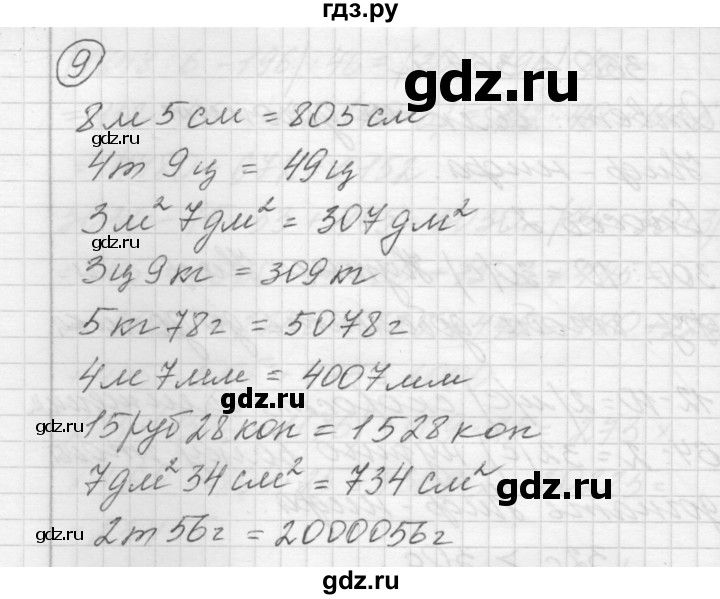 гдз.ру
9
gdz.ru
8м 5см = 805см
gdz.ru
4т 9ц = 49ц
3м² 7дм² = 307дм²
gdz.ru
gdz.ru
3ц 9кг = 309кг
5кг 78г = 5078г
4м 7мм = 4007мм
gdz.ru
gdz.ru
15руб 28коп = 1528коп
7дм² 34см² = 734см²
gdz.ru
gdz.ru
2т 56г = 2000056г
gdz.ru